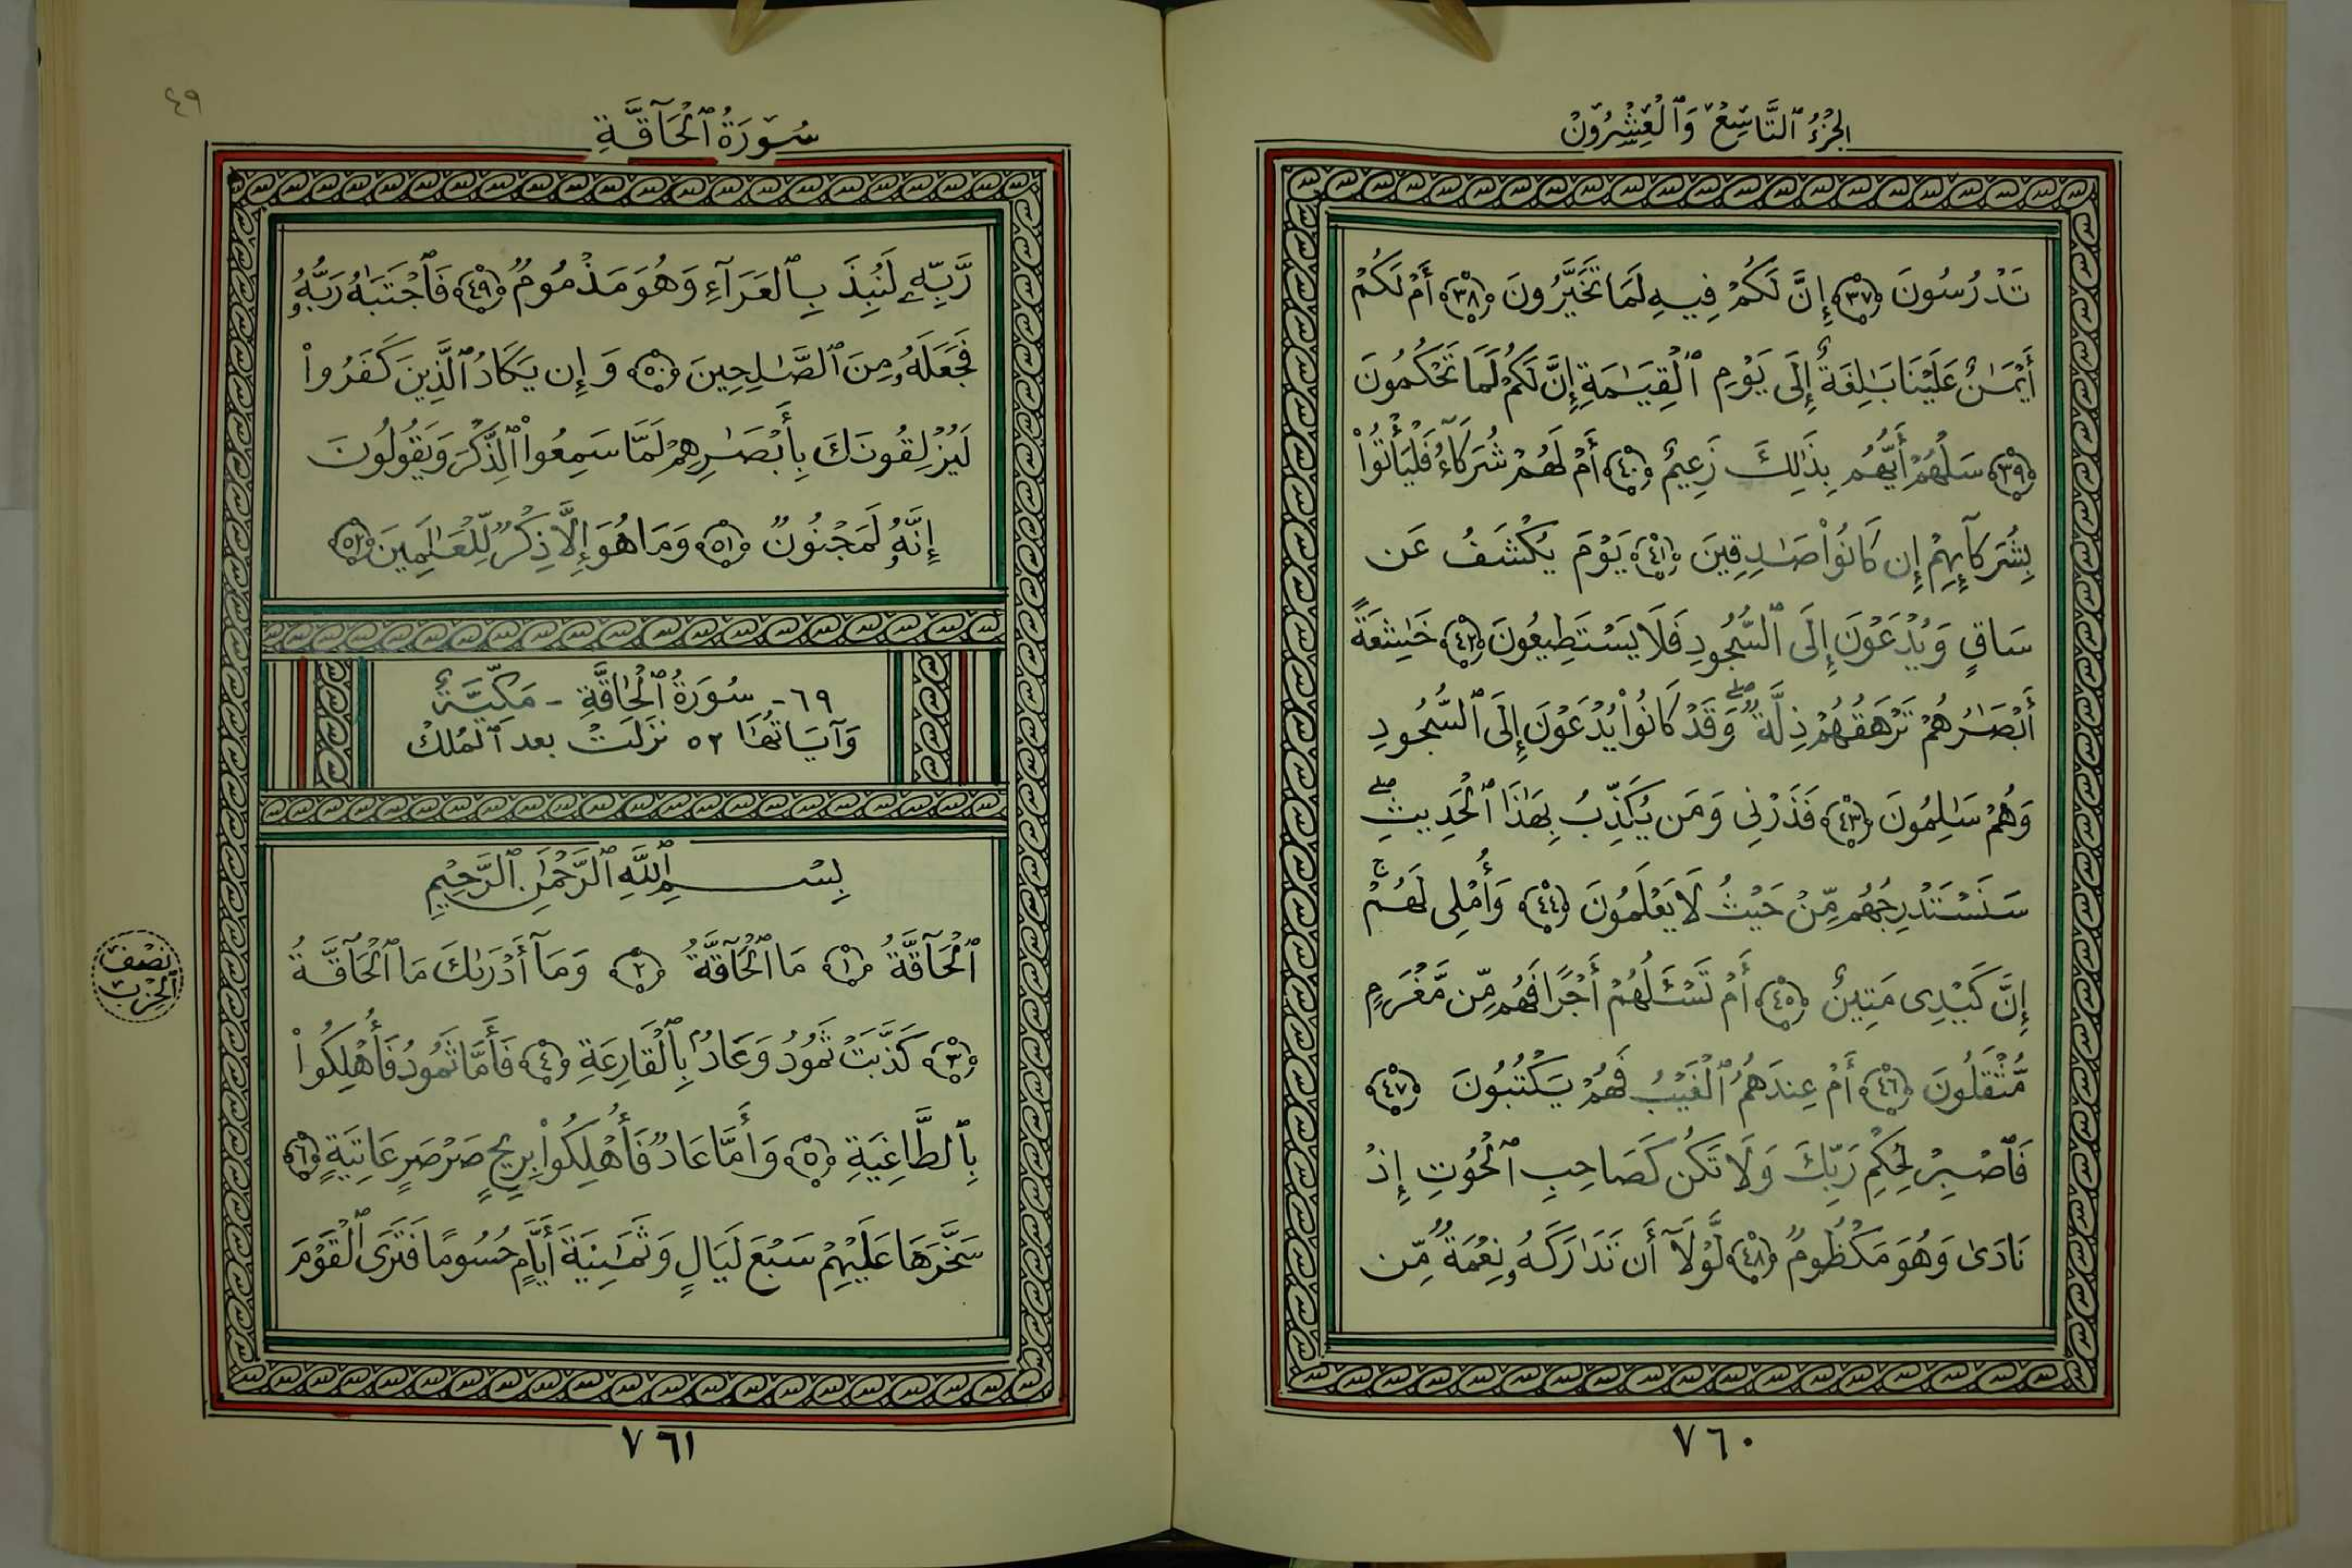 الجُزْءُ ٱلتَّاسِعُ وَٱلْعِشْرُونَ
تَدْرُسُونَ ﴿٣٧﴾ إِنَّ لَكُمْ فِيهِ لَمَا تَخَيَّرُونَ ﴿٣٨﴾ أَمْ لَكُمْ
أَيْمَٰنٌ عَلَيْنَا بَٰلِغَةٌ إِلَىٰ يَوْمِ ٱلْقِيَٰمَةِ إِنَّ لَكُمْ لَمَا تَحْكُمُونَ
﴿٣٩﴾ سَلْهُمْ أَيُّهُم بِذَٰلِكَ زَعِيمٌ ﴿٤٠﴾ أَمْ لَهُمْ شُرَكَآءُ فَلْيَأْتُوا۟
بِشُرَكَآئِهِمْ إِن كَانُوا۟ صَٰدِقِينَ ﴿٤١﴾ يَوْمَ يُكْشَفُ عَن
سَاقٍ وَيُدْعَوْنَ إِلَى ٱلسُّجُودِ فَلَا يَسْتَطِيعُونَ ﴿٤٢﴾ خَٰشِعَةً
أَبْصَٰرُهُمْ تَرْهَقُهُمْ ذِلَّةٌ ۖ وَقَدْ كَانُوا۟ يُدْعَوْنَ إِلَى ٱلسُّجُودِ
وَهُمْ سَٰلِمُونَ ﴿٤٣﴾ فَذَرْنِى وَمَن يُكَذِّبُ بِهَٰذَا ٱلْحَدِيثِ ۖ
سَنَسْتَدْرِجُهُم مِّنْ حَيْثُ لَا يَعْلَمُونَ ﴿٤٤﴾ وَأُمْلِى لَهُمْ ۚ
إِنَّ كَيْدِى مَتِينٌ ﴿٤٥﴾ أَمْ تَسْـَٔلُهُمْ أَجْرًا فَهُم مِّن مَّغْرَمٍ
مُّثْقَلُونَ ﴿٤٦﴾ أَمْ عِندَهُمُ ٱلْغَيْبُ فَهُمْ يَكْتُبُونَ ﴿٤٧﴾
فَٱصْبِرْ لِحُكْمِ رَبِّكَ وَلَا تَكُن كَصَاحِبِ ٱلْحُوتِ إِذْ
نَادَىٰ وَهُوَ مَكْظُومٌ ﴿٤٨﴾ لَّوْلَآ أَن تَدَٰرَكَهُۥ نِعْمَةٌ مِّن
٧٦٠
٤٩
سُورَةُ ٱلْحَآقَّةِ
رَّبِّهِۦ لَنُبِذَ بِٱلْعَرَآءِ وَهُوَ مَذْمُومٌ ﴿٤٩﴾ فَٱجْتَبَٰهُ رَبُّهُۥ
فَجَعَلَهُۥ مِنَ ٱلصَّٰلِحِينَ ﴿٥٠﴾ وَإِن يَكَادُ ٱلَّذِينَ كَفَرُوا۟
لَيُزْلِقُونَكَ بِأَبْصَٰرِهِمْ لَمَّا سَمِعُوا۟ ٱلذِّكْرَ وَيَقُولُونَ
إِنَّهُۥ لَمَجْنُونٌ ﴿٥١﴾ وَمَا هُوَ إِلَّا ذِكْرٌ لِّلْعَٰلَمِينَ ﴿٥٢﴾
٦٩- سُورَةُ ٱلْحَاقَّةِ - مَكِّيَّةٌ
وَآيَاتُهَا ٥٢ نَزَلَتْ بعد ٱلمُلْكْ
بِسْمِ ٱللَّهِ ٱلرَّحْمَٰنِ ٱلرَّحِيمِ
ٱلْحَآقَّةُ ﴿١﴾ مَا ٱلْحَآقَّةُ ﴿٢﴾ وَمَآ أَدْرَىٰكَ مَا ٱلْحَآقَّةُ
نِصْف ٱلحِزب
﴿٣﴾ كَذَّبَتْ ثَمُودُ وَعَادٌۢ بِٱلْقَارِعَةِ ﴿٤﴾ فَأَمَّا ثَمُودُ فَأُهْلِكُوا۟
بِٱلطَّاغِيَةِ ﴿٥﴾ وَأَمَّا عَادٌ فَأُهْلِكُوا۟ بِرِيحٍ صَرْصَرٍ عَاتِيَةٍ ﴿٦﴾
سَخَّرَهَا عَلَيْهِمْ سَبْعَ لَيَالٍ وَثَمَٰنِيَةَ أَيَّامٍ حُسُومًا فَتَرَى ٱلْقَوْمَ
٧٦١